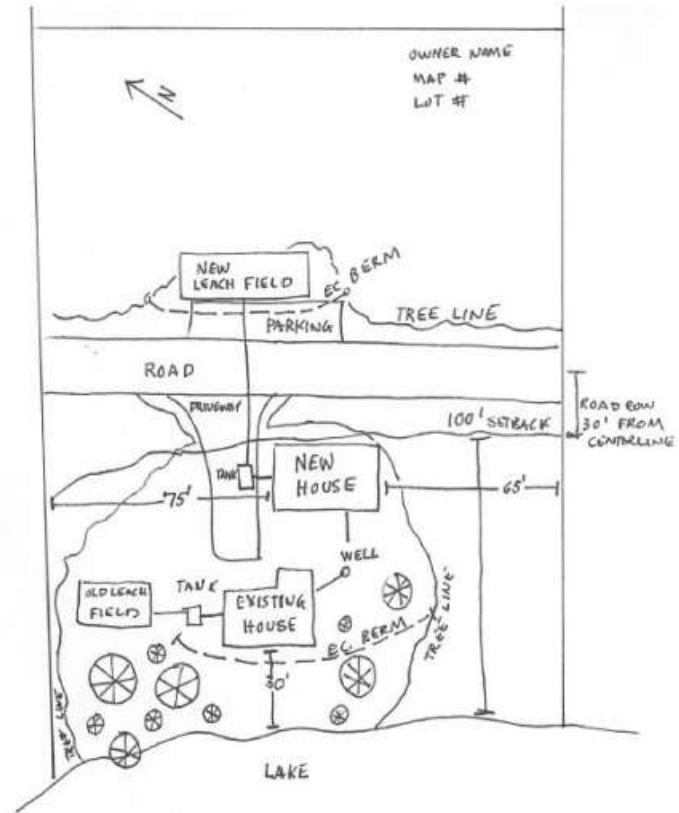 OWNER NAME
MAP #
LOT #
N
NEW
LEACH FIELD
EC BERM
PARKING
TREE LINE
ROAD
DRIVEWAY
100' SETBACK
ROAD ROW
30' FROM
CENTERLINE
TANK
NEW
HOUSE
75'
65'
WELL
OLD LEACH
FIELD
TANK
EXISTING
HOUSE
EC BERM
TREE LINE
30'
TREE LINE
LAKE